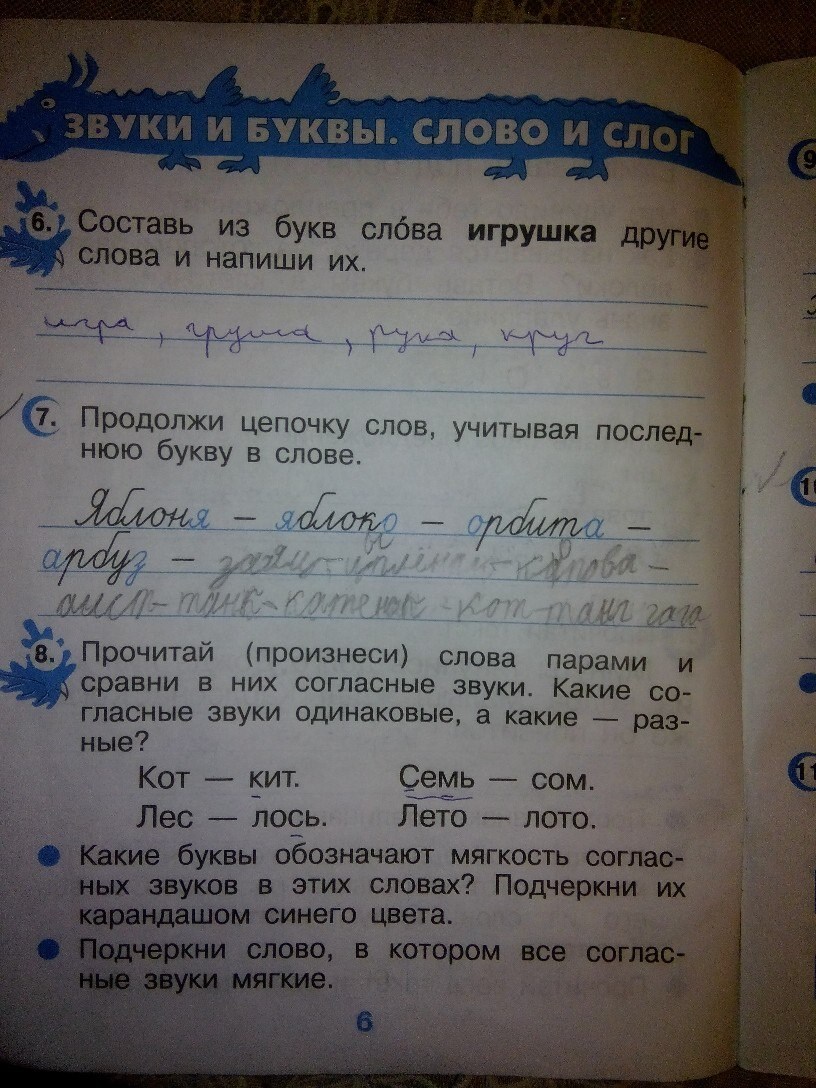 ЗВУКИ И БУКВЫ. СЛОВО И СЛОГ
6. Составь из букв сло́ва игрушка другие
слова и напиши их.
игра, груша, рука, круг
7. Продолжи цепочку слов, учитывая послед-
нюю букву в слове.
Яблоня – яблоко – орбита –
арбуз –
аист- танк- -кот-
8. Прочитай (произнеси) слова парами и
сравни в них согласные звуки. Какие со-
гласные звуки одинаковые, а какие — раз-
ные?
Кот — кит. Семь — сом.
Лес — лось. Лето — лото.
Какие буквы обозначают мягкость соглас-
ных звуков в этих словах? Подчеркни их
карандашом синего цвета.
Подчеркни слово, в котором все соглас-
ные звуки мягкие.
6
9
10
11